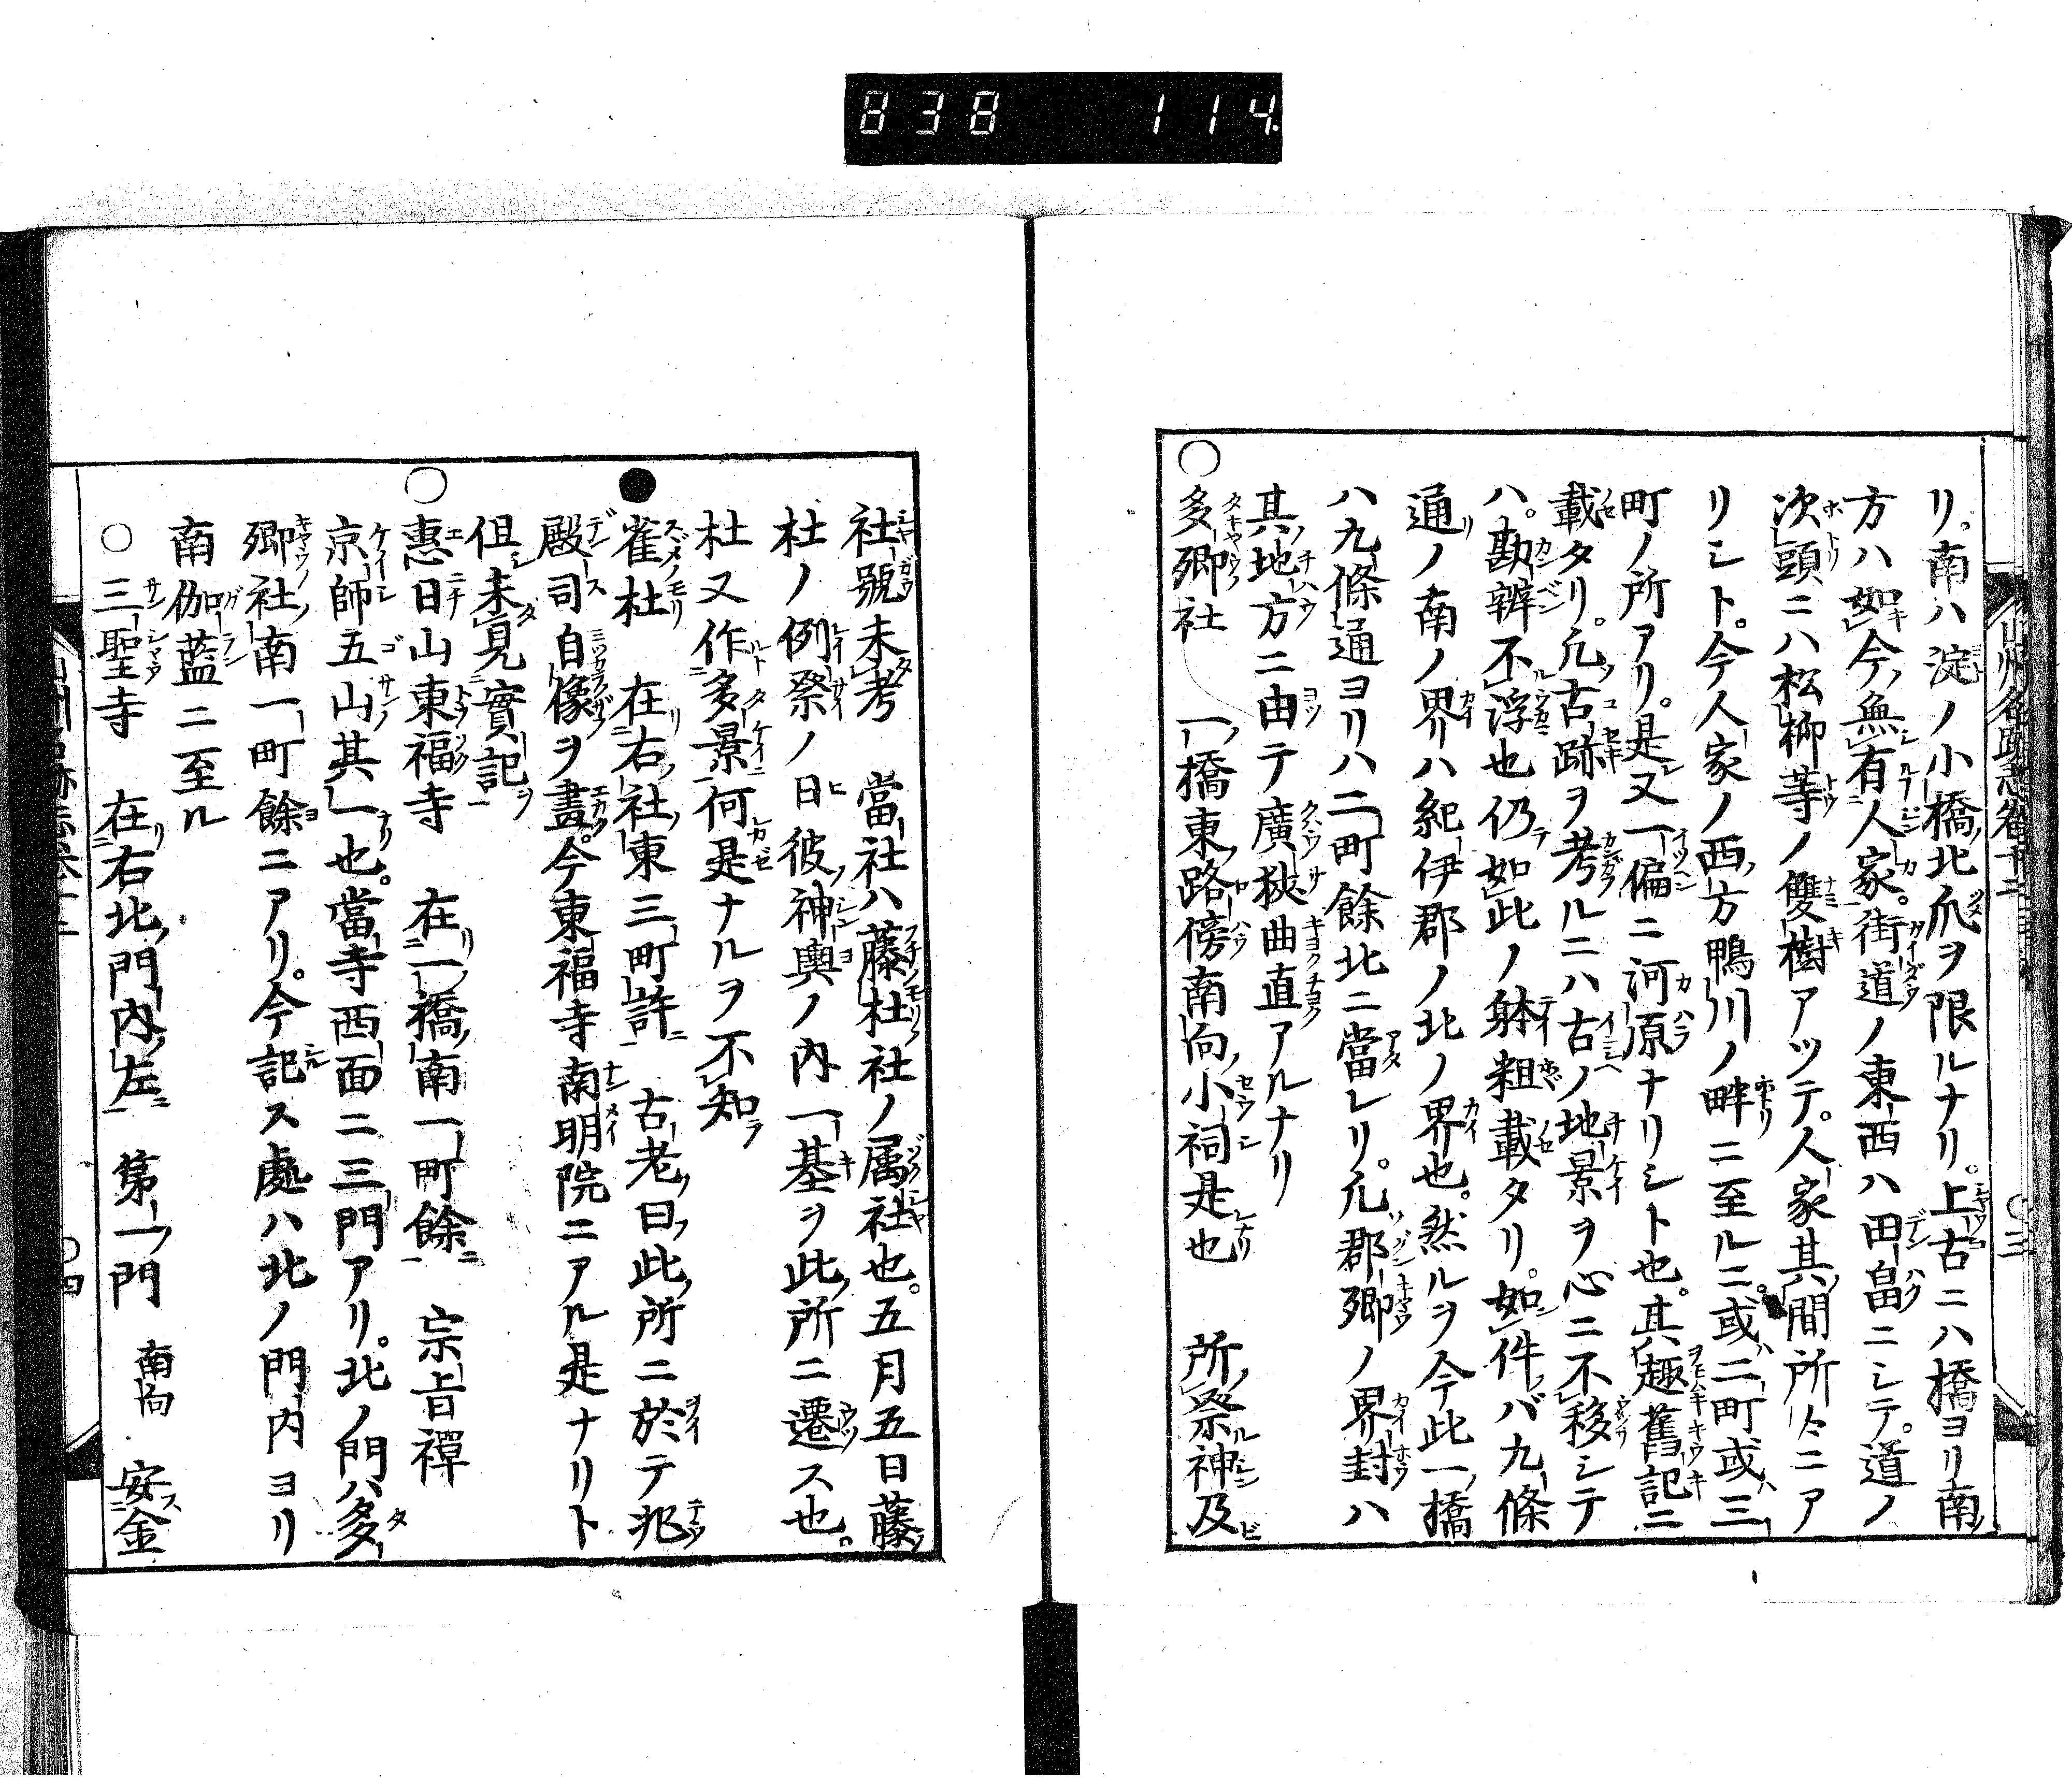 838 114
リ。南ハ淀ノ小橋北爪ヲ限ルナリ。上古ニハ橋ヨリ南
方ハ如今無有人家。街道ノ東西ハ田畠ニシテ。道ノ
次頭ニハ松柳等ノ雙樹アツテ。人家其間所々ニア
リシト。今人家ノ西方鴨川ノ畔ニ至ルニ。或二町或三
町ノ所アリ。是又一偏ニ河原ナリシト也。其趣舊記ニ
載タリ。凢古跡ヲ考ルニハ古ノ地景ヲ心ニ不移シテ
ハ。勘辨不浮也仍如此ノ躰粗載タリ。如件バ九條
通ノ南ノ界ハ紀伊郡ノ北ノ界也。然ルヲ今此一橋
ハ九條通ヨリハ二町餘北ニ當レリ。凢郡郷ノ界封ハ
其地方ニ由テ廣狹曲直アルナリ
○多郷社 一橋東路傍南向小祠是也 所祭神及
社號未考 當社ハ藤杜社ノ属社也。五月五日藤
杜ノ例祭ノ日彼神輿ノ内一基ヲ此所ニ遷ス也。
杜又作多景何是ナルヲ不知
●雀杜 在右社東三町許 古老曰此所ニ於テ兆
殿司自像ヲ畫。今東福寺南明院ニアル是ナリト
但未見實記
○惠日山東福寺 在一橋南一町餘 宗旨禪
京師五山其一也。當寺西面ニ三門アリ。北ノ門ハ多
郷社南一町餘ニアリ。今記ス處ハ北ノ門内ヨリ
南伽藍ニ至ル
○三聖寺 在右北門内左 第一門 南向 安金